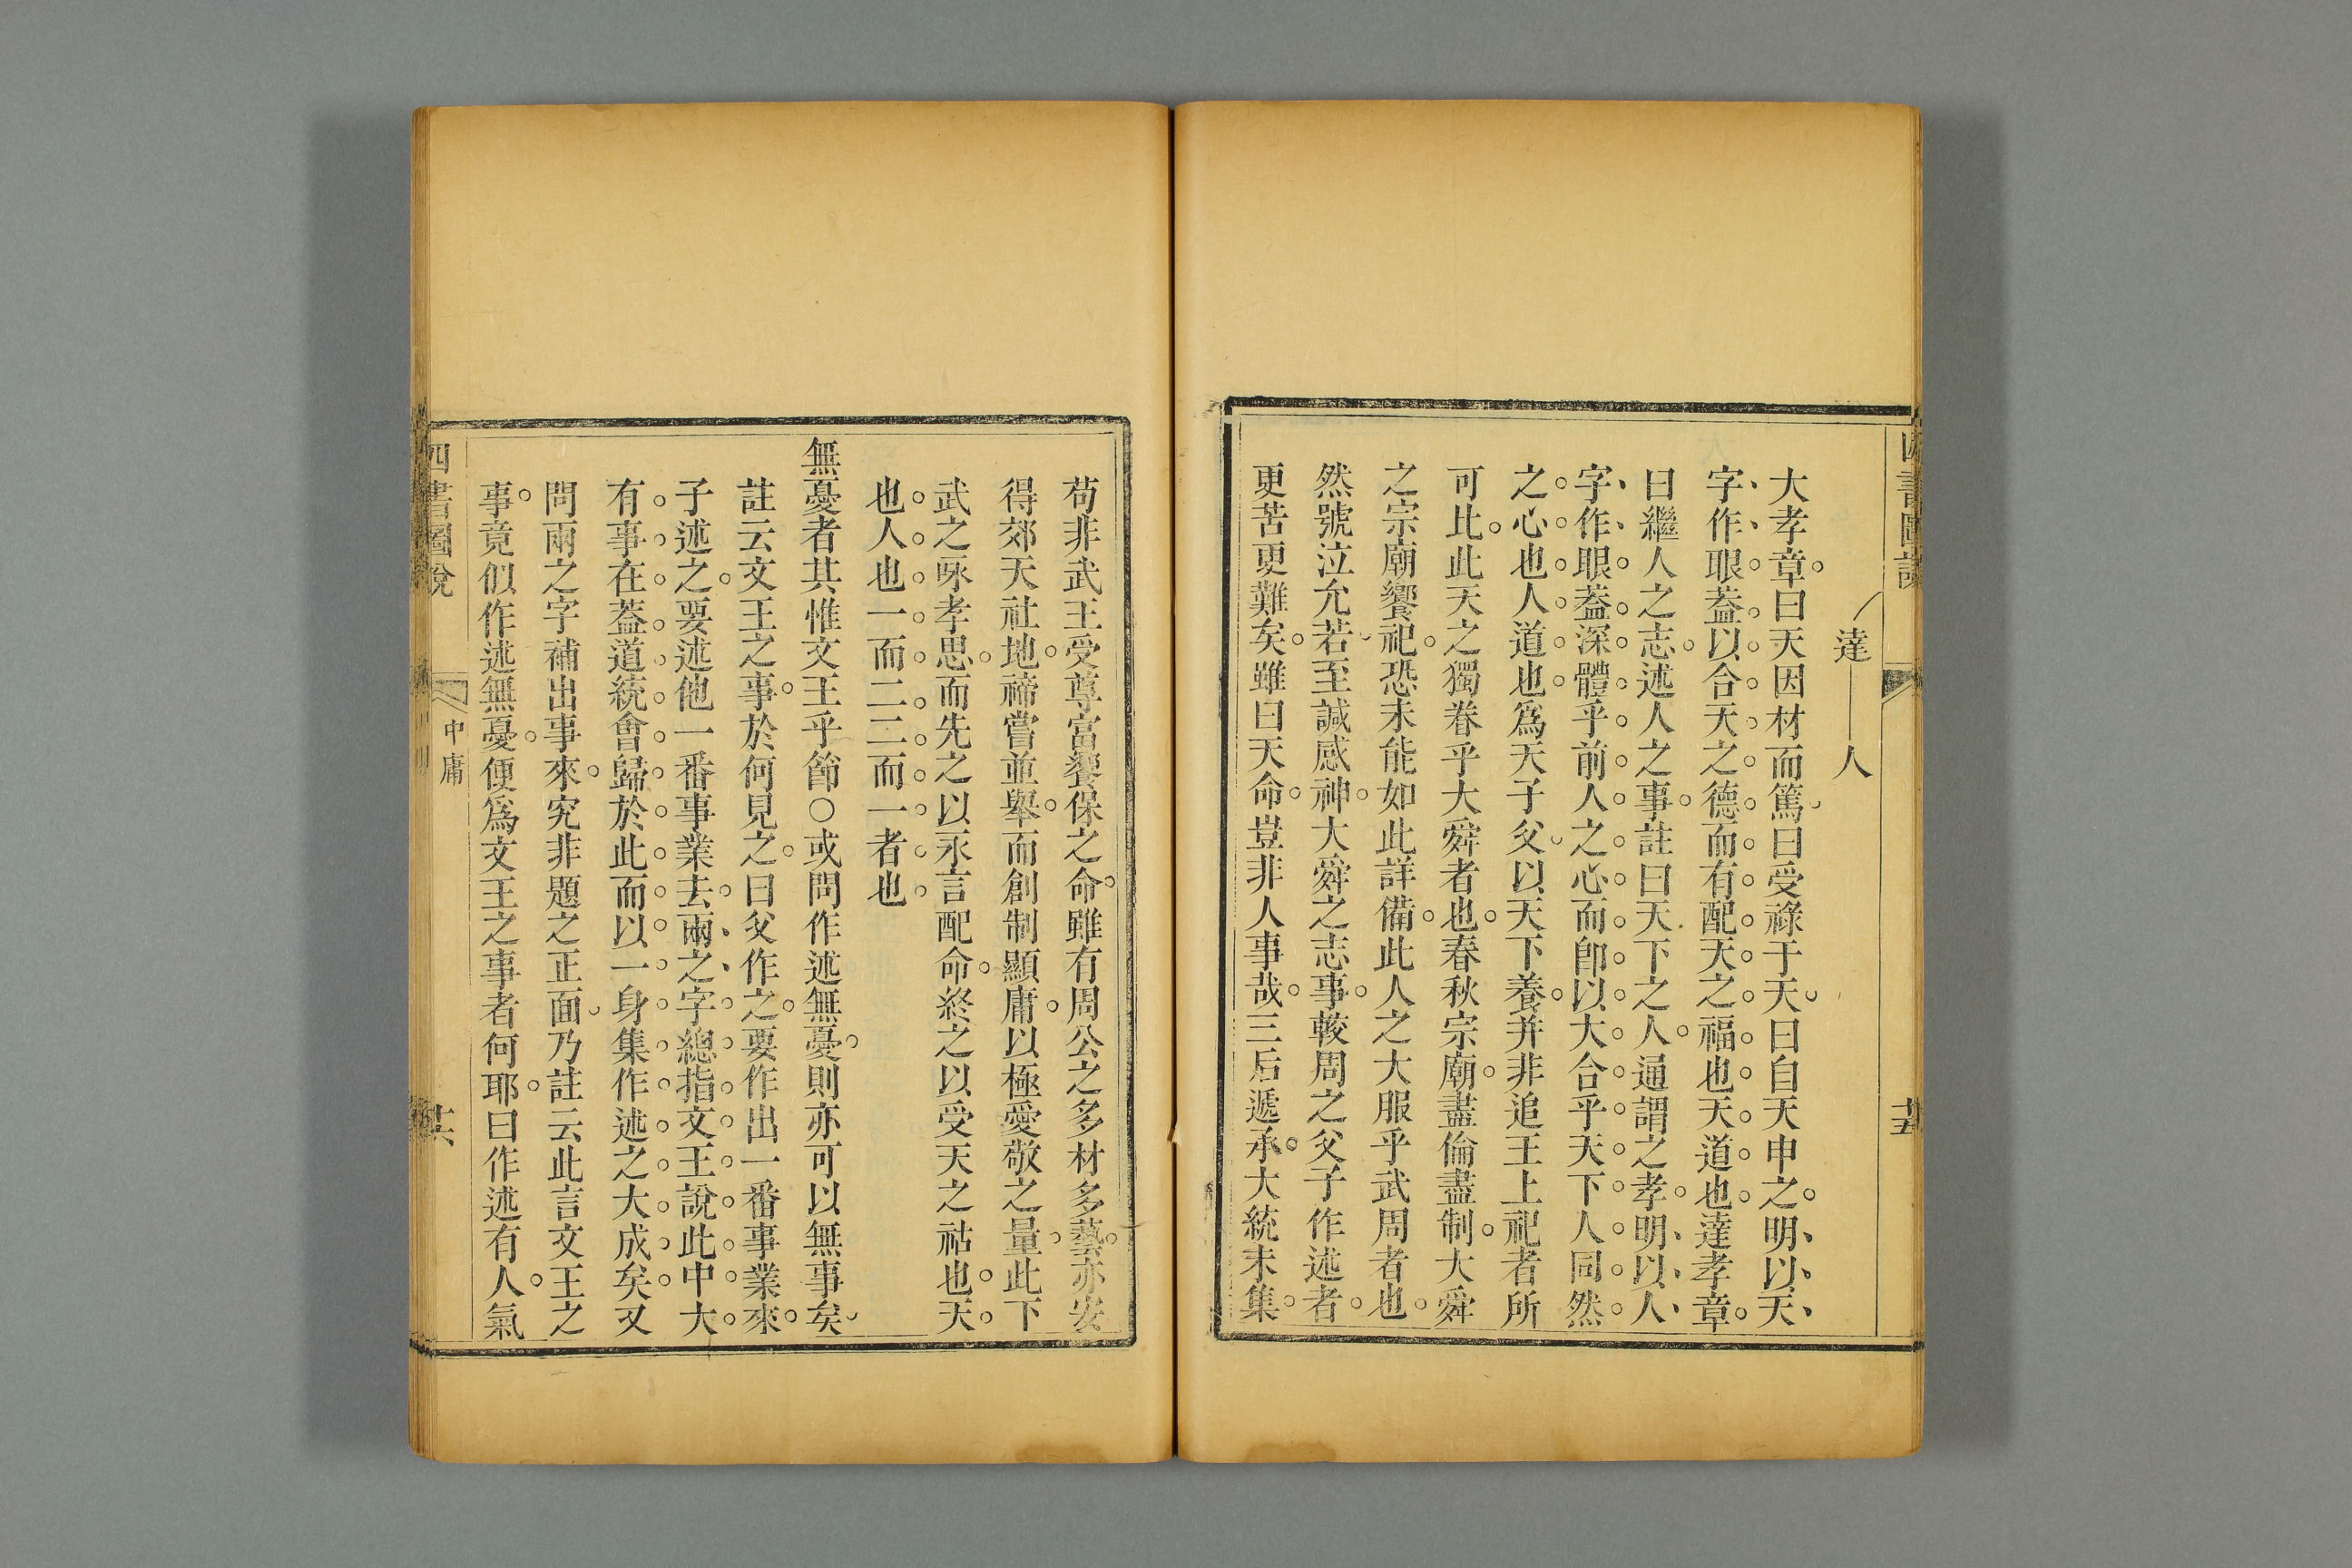 達——人
大孝章曰天因材而篤曰受祿于天曰自天申之明以天
字作眼葢以合天之德而有配天之福也天道也達孝章
曰繼人之志述人之事註曰天下之人通謂之孝明以人
字作眼葢深體乎前人之心而卽以大合乎天下人同然
之心也人道也爲天子父以天下養并非追王上祀者所
可比此天之獨眷乎大舜者也春秋宗廟盡倫盡制大舜
之宗廟饗祀恐未能如此詳備此人之大服乎武周者也
然號泣允若至諴感神大舜之志事較周之父子作述者
更苦更難矣雖曰天命豈非人事哉三后遞承大統未集
苟非武王受尊富饗保之命雖有周公之多材多藝亦安
得郊天社地禘嘗並舉而創制顯庸以極愛敬之量此下
武之咏孝思而先之以永言配命終之以受天之祜也天
也人也一而二二而一者也
無憂者其惟文王乎節○或問作述無憂則亦可以無事矣
註云文王之事於何見之曰父作之要作出一番事業來
子述之要述他一番事業去兩之字總指文王說此中大
有事在葢道統會歸於此而以一身集作述之大成矣又
問兩之字補出事來究非題之正面乃註云此言文王之
事竟似作述無憂便爲文王之事者何耶曰作述有人氣
四書圖說
中庸